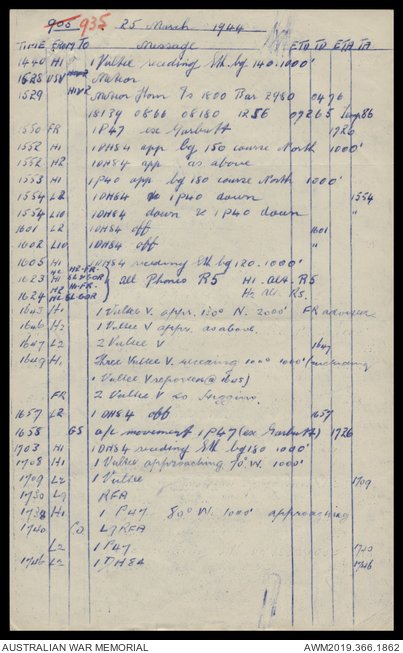 905 935 25 March 1944
TIME FROM TO Message ETA TD ETA TA
1440 H1 1 Vultee receding Sth bg 140. 1000'
1528 VSV Meteor
1529 HIV2 Meteor From Ts 1800 Bar 2980 0476
18139 0866 08180 1256 07265 Temp 86
1550 FR 1 P47 ex Garbutt 1720
1552 H1 1 DH84 app bg 150 course North 1000'
1552 H2 1 DH84 app as above
1553 H1 1 P40 app bg 180 course North 1000'
1554 L2 1 DH84 & 1 P40 down 1554
1554 L10 1 DH84 down & 1 P40 down "
1601 L2 1 DH84 off 1601
1602 L10 1 DH84 off "
1605 H1 1 DH84 receding Sth bg 120. 1000'
1623 H1 all Phones R5 H1. Alt. R5
1624 H2 H2 Alt. R5.
1645 H1 1 Vultee V. appr. 120° N. 2000' FR advised
1646 H2 1 Vultee V appr. as above.
1647 L2 2 Vultee V 1647
1649 H1 Three Vultee V. receding 1000' (including
1 Vultee V reported @ 1645)
FR 2 Vultee V to Higgins.
1657 L2 1 DH84 off 1657
1658 GS a/c movement 1 P47 (ex Garbutt) 1726
1703 H1 1 DH84 receding Sth bg 180 1000'
1708 H1 1 Vultee approaching N. 1000'
1709 L2 1 Vultee 1709
1730 L7 RFA
H1 1 P47 80° W. 1000' approaching
1740 Co L7 RFA
L2 1 P47 1740
1746 L2 1 DH84 1746
AUSTRALIAN WAR MEMORIAL AWM2019.366.1862